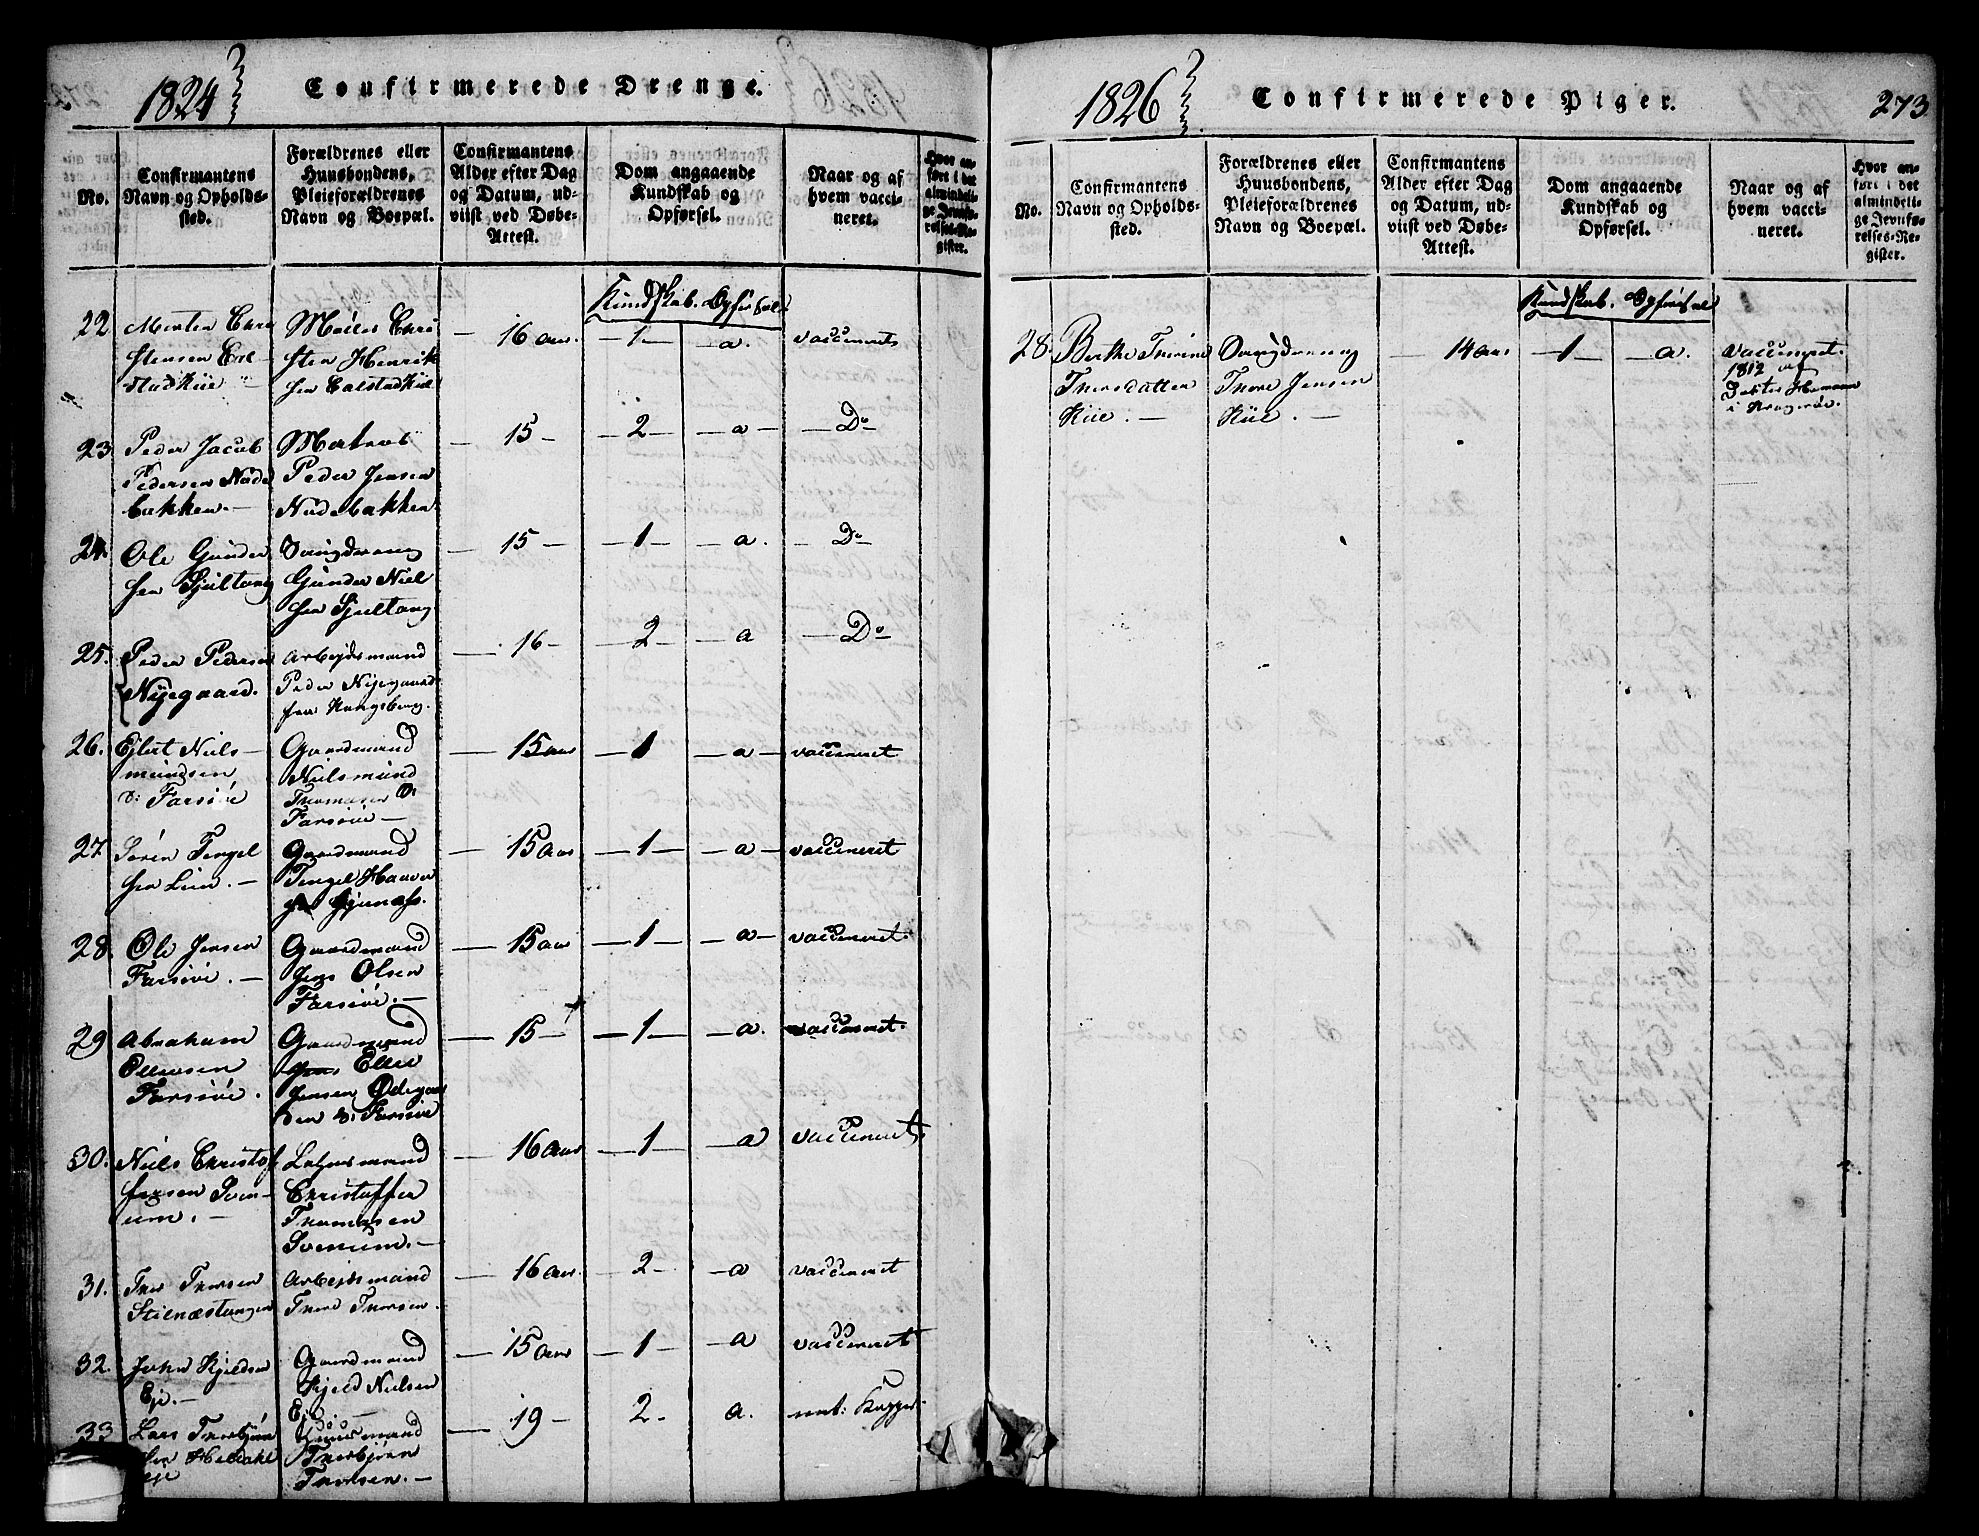 1824
Confirmerede Drenge.
No.
Confirmantens Navn og Opholdssted.
Forældrenes eller Huusbondens, Pleieforældrenes Navn og Boepæl.
Confirmantens Alder efter Dag og Datum, udviist ved Døbe-Attest.
Dom angaaende Kundskab og Opførsel.
Naar og af hvem vaccineret.
Hvor anført i det almindelige Jevnførelses-Register.
Kundskab. Opførsel
22 Morten Chri
stensen
stadkiie
Chri
sten Henrik
sen
16 aar 1 a. vaccineret
23 Peder Jacob
Pedersen
bakken.
Matros
Peder Jensen
bakken
15 2 a Do
24. Ole Gunder
sen
Gunder Niel
sen
15 1 a. Do
25. Peder Pedersen
Nyegaard.
Arbejdsmand
Peder Nyegaard
fra Kongsberg.
16 2 a Do
26. Ejlert Niels
mundsen
Farsiöe
Gaardmand
Nielsmund
Farsiöe
15 aar 1 a vaccineret
27. Sören Tengel
sen Lien.
Gaardmand
Tengel
15 aar 1 a vaccineret
28. Ole Jensen
Farsiöe.
Gaardmand
Jens Olsen
Farsiöe.
15 aar 1 a vaccineret.
29 Abraham
Ellevsen
Farsiöe.
Gaardmand
Jens Ellev
Jensen Ødegaar
den Farsiöe
15 1 a. vaccineret.
30. Niels Christof
fersen
um.
mand
Christoffer
Thomasen
16 aar 1 a vaccineret
31. Thor Thorsen
Stilnæstangen
Arbejdsmand
Thore Thorsen.
16 aar 2 a vaccineret
32. John Kjeldsen
Eje.
Gaardmand
Kjeld Nielsen
Eje
15 aar 1 a vaccineret
33 Lars Thorbjörn
sen
eje
Huusmand
Thorbjörn
Thorsen.
19 2 a. nat: Kopper.
1826
Confirmerede Piger.
273
No.
Confirmantens Navn og Opholdssted.
Forældrenes eller Huusbondens, Pleieforældrenes Navn og Boepæl.
Confirmantens Alder efter Dag og Datum, udviist ved Døbe-Attest.
Dom angaaende Kundskab og Opførsel.
Naar og af hvem vaccineret.
Hvor anført i det almindelige Jevnførelses-Register.
Kundskab. Opførsel
28. Berthe Thorine
Thorsdatter
Kiie.
Thore Jensen
Kiie.
14 aar 1 a. vaccineret.
1812 af
Docter Homan
i Kragerøe.